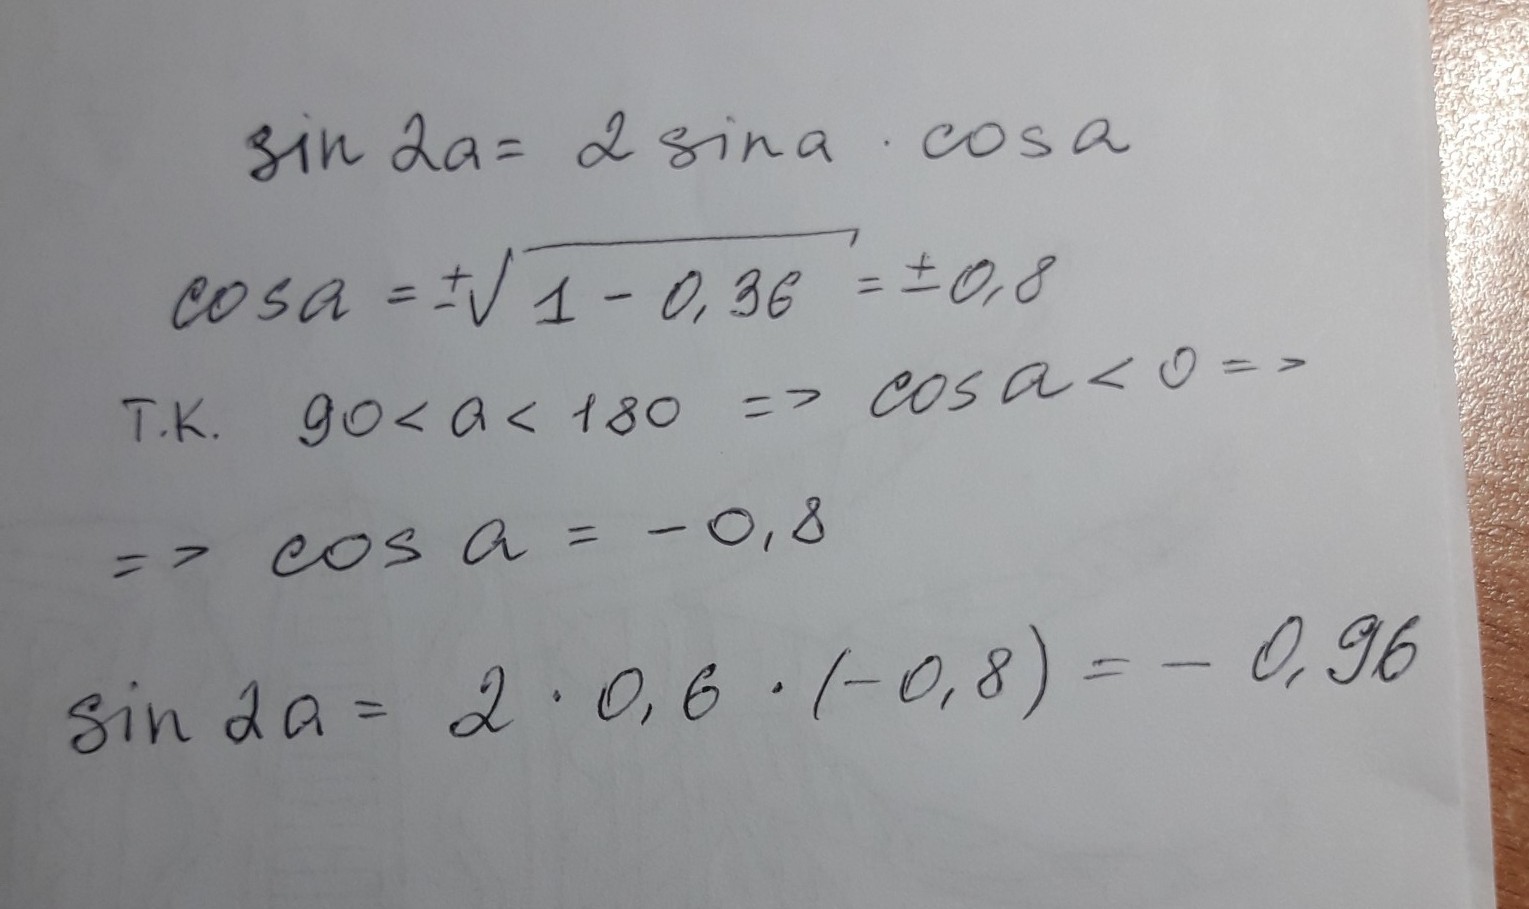 sin 2a = 2 sin a · cos a
cos a = ±√1 - 0,36 = ±0,8
Т.К. 90 < a < 180 => cos a < 0 =>
=> cos a = -0,8
sin 2a = 2 · 0,6 · (-0,8) = - 0,96